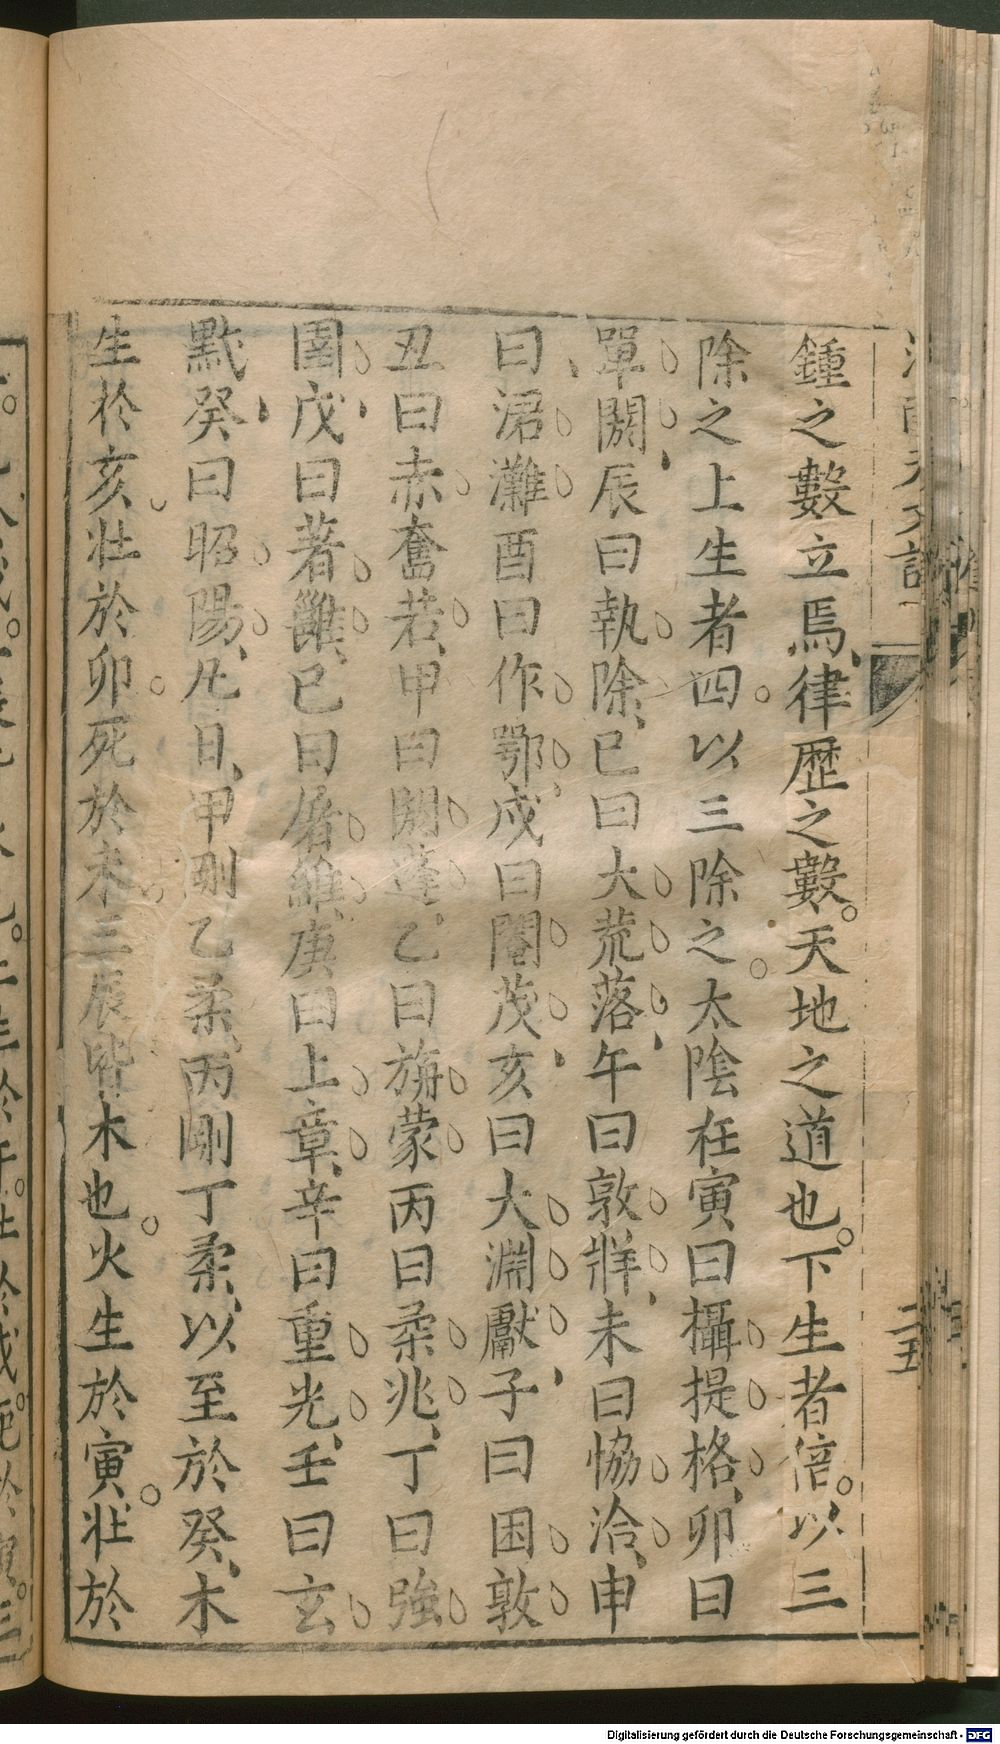 鍾之數立焉律歷之數。天地之道也。下生者倍。以三
除之上生者四。以三除之。太陰在寅曰攝提格、卯曰
單閼、辰曰執除、巳曰大荒落、午曰敦牂、未曰恊洽、申
曰涒灘酉曰作鄂、戌曰閹茂、亥曰大淵獻、子曰困敦
丑曰赤奮若、甲曰閼蓬、乙曰旃蒙丙曰柔兆、丁曰強
圉、戊曰著雝、已曰屠維、庚曰上章、辛曰重光、壬曰玄
黓、癸曰昭陽、凡日、甲剛乙柔、丙剛丁柔、以至於癸、木
生於亥壯於卯。死於未三辰皆木也。火生於寅。壯於
二五
Digitalisierung gefördert durch die Deutsche Forschungsgemeinschaft - DFG